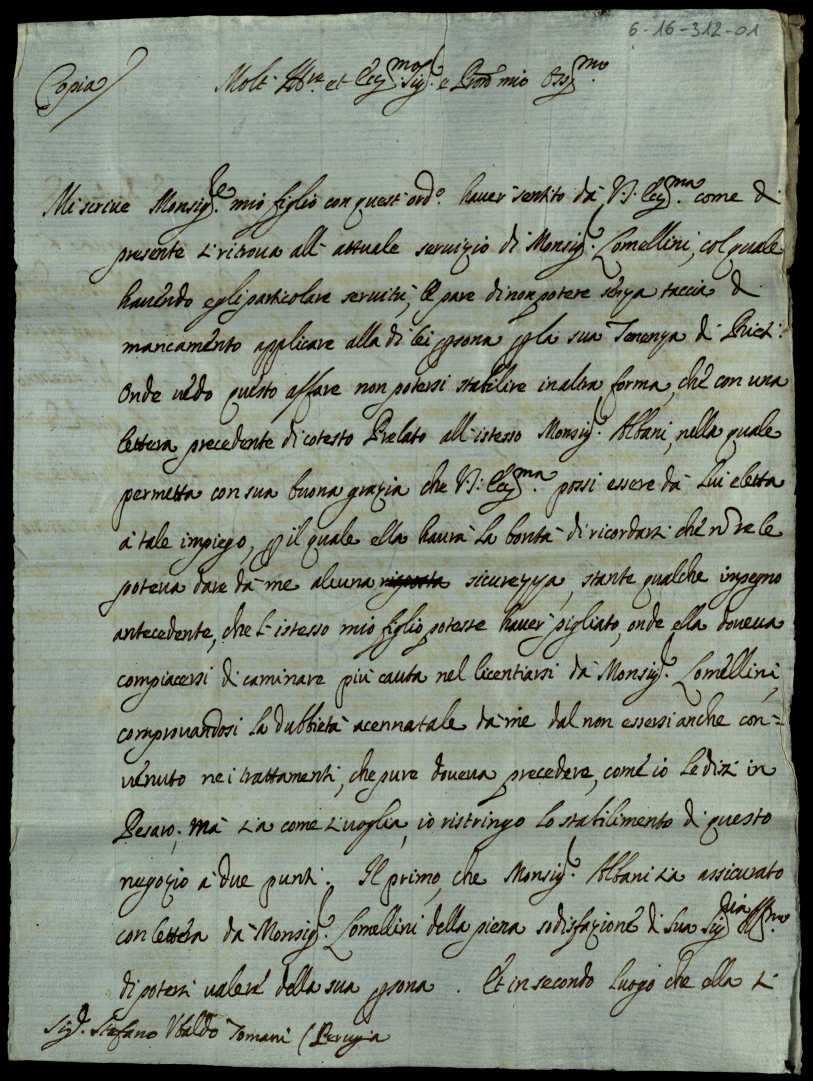 6-16-312-01
Copia
Molt' Ill.re et Ecc.mo Sig.r e Pron mio Oss.mo
Mi scrive Monsig.re mio figlio con quest'ord.o haver sentito dà V.S. Ecc.ma come di
presente si ritrova all'attuale servizio di Monsig.r Lomellini, col quale
havendo egli particolare servitù, le pare di non potere senza taccia di
mancamento applicare alla di lei persona per la sua Tenenza di Rieti:
Onde vedo questo affare non potersi stabilire in altra forma, che con una
lettera precedente di cotesto Prelato all'istesso Monsig.r Albani, nella quale
permetta con sua buona grazia che V.S. Ecc.ma possi essere dà lui eletta
à tale impiego, per il quale ella haurà la bontà di ricordarsi che non se le
poteva dare dà me alcuna risposta sicurezza, stante qualche impegno
antecedente, che l'istesso mio figlio potesse haver pigliato, onde ella doveva
compiacersi di caminare più cauta nel licentiarsi dà Monsig.r Lomellini,
comprovandosi la dubbietà acennatale dà me dal non essersi anche con=
venuto ne i trattamenti, che pure doveva precedere, come io le dissi in
Pesaro. Mà sia come si voglia, io ristringo lo stabilimento di questo
negozio à due punti. Il primo, che Monsig.r Albani sia assicurato
con lettera dà Monsig.r Lomellini della piena sodisfazione di Sua Sig.ria Ill.ma
di potersi valere della sua persona. Et in secondo luogo che ella si
Sig.r Stefano Ubaldo Tomani (Perugia